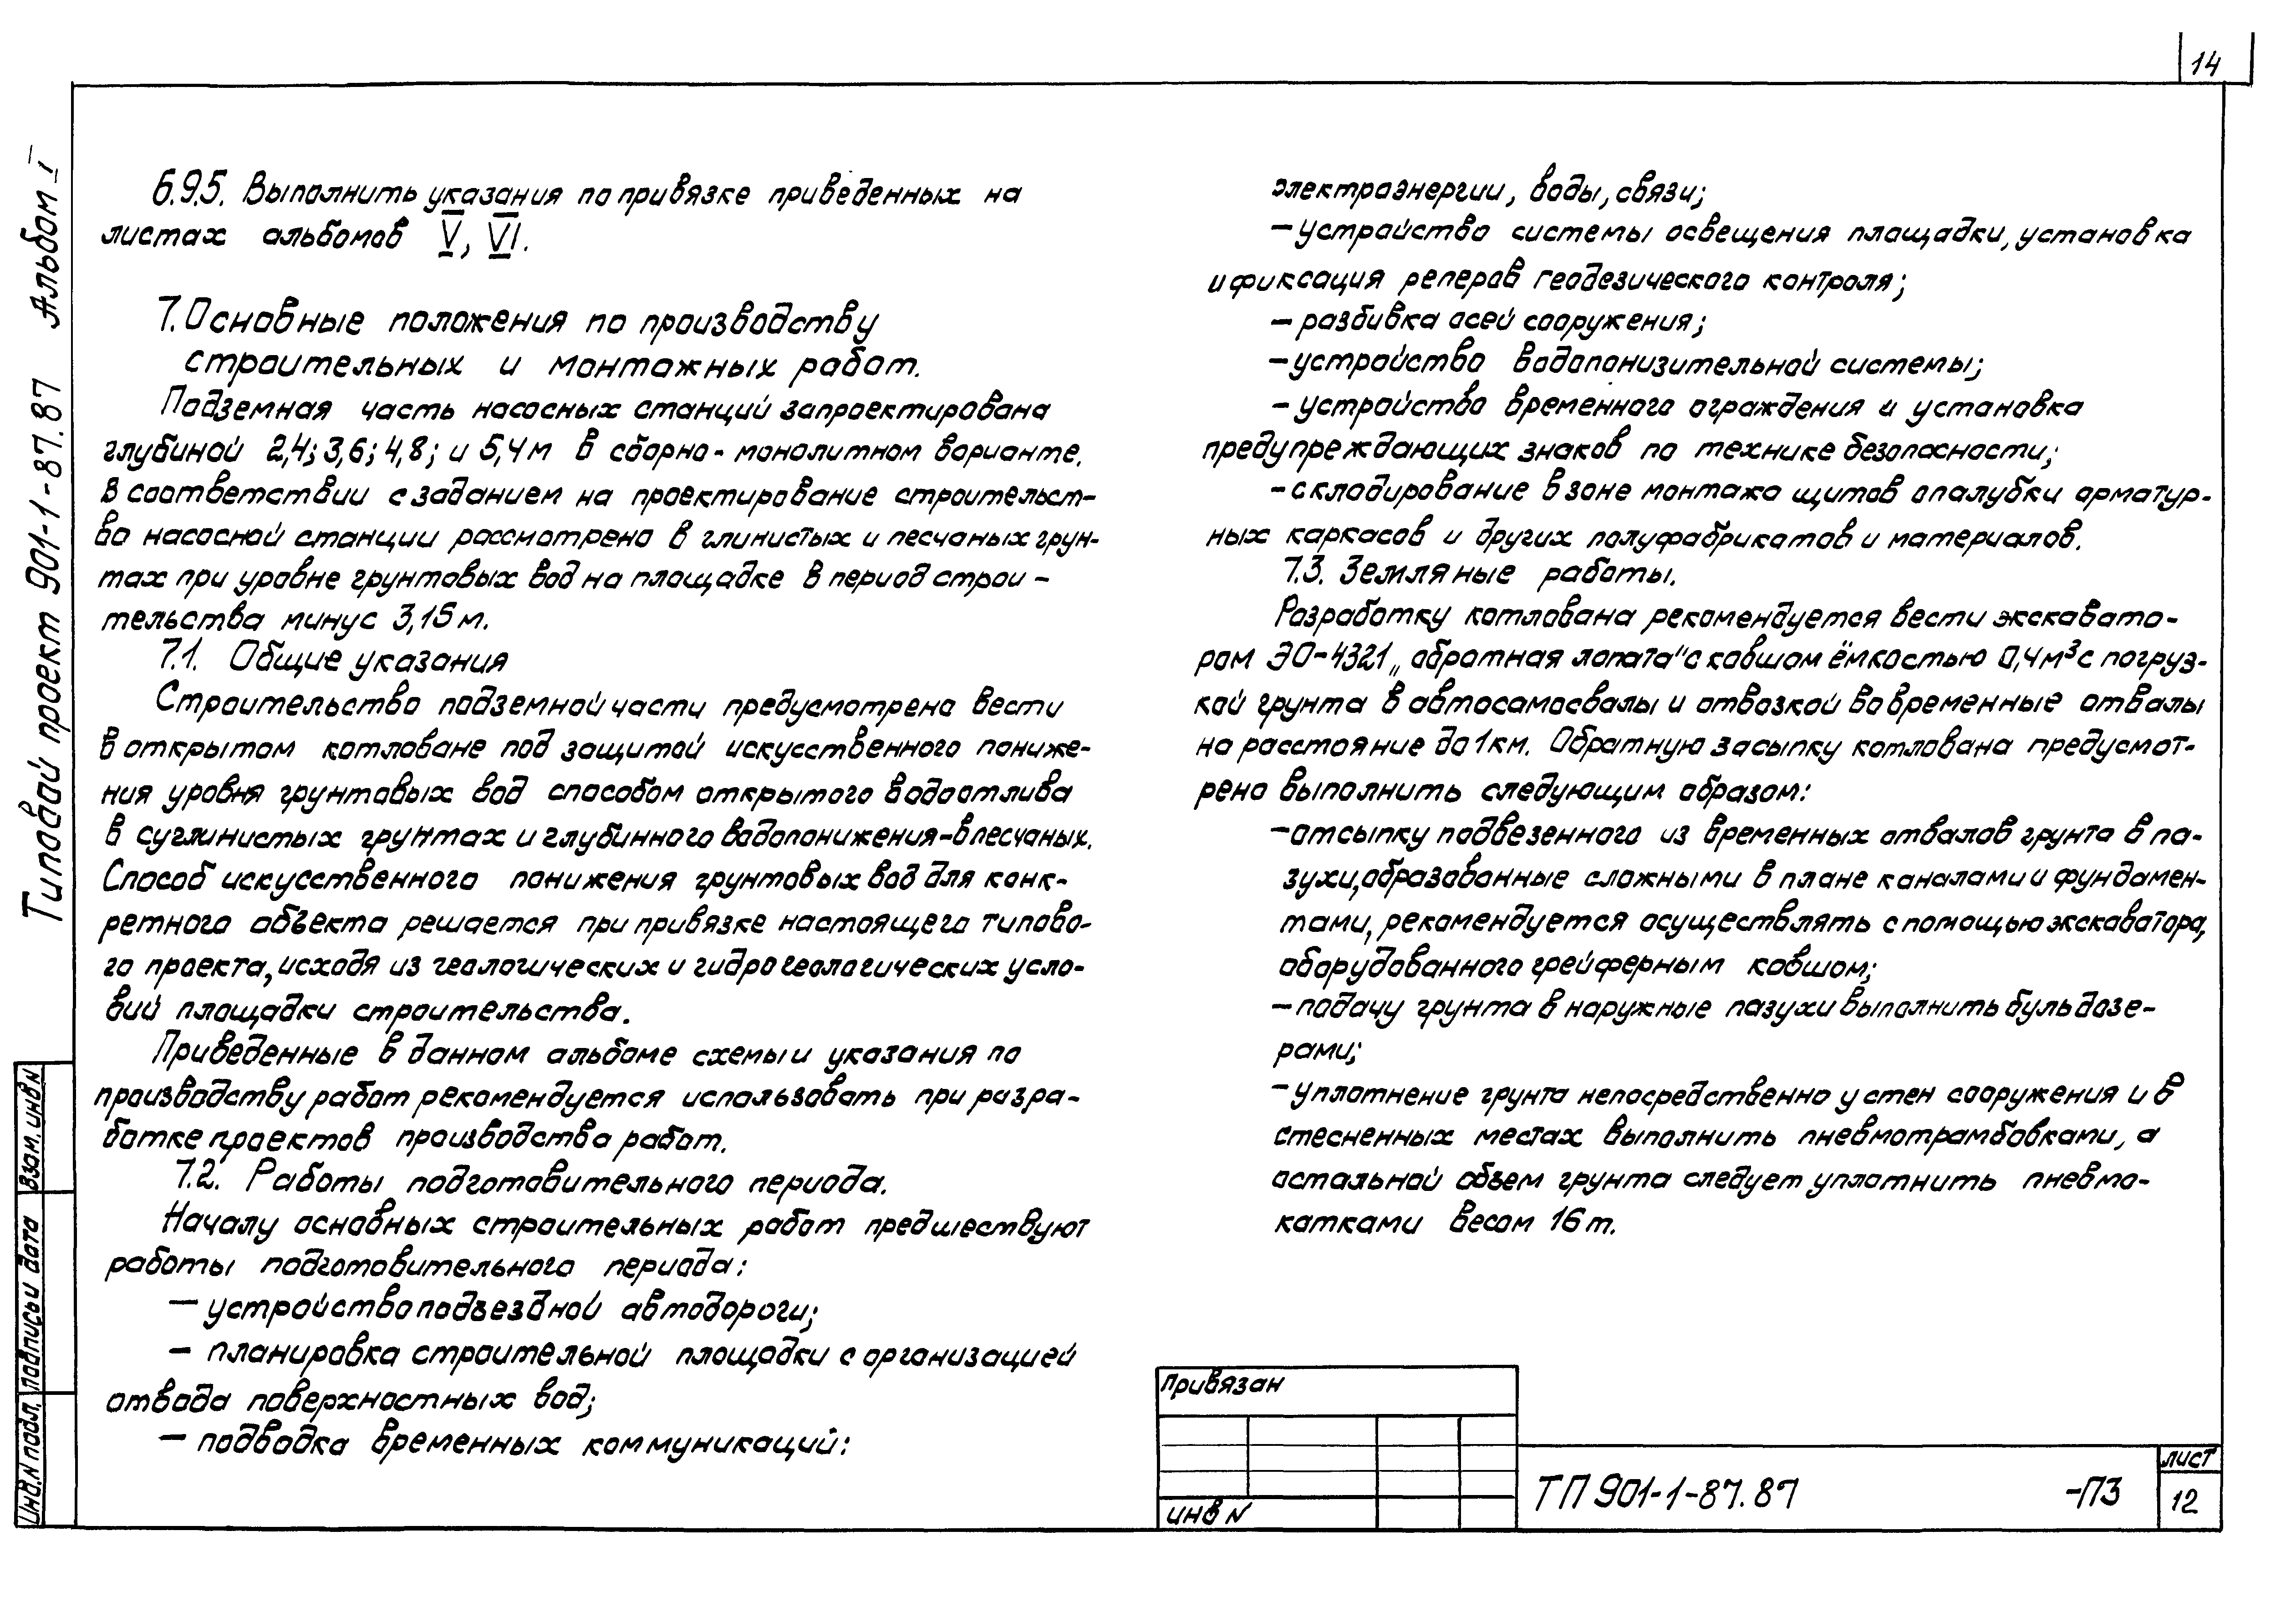 14
Типовой проект 901-1-87.87 Альбом I
6.9.5. Выполнить указания по привязке приведенных на
листах альбомов V, VI.
7. Основные положения по производству
строительных и монтажных работ.
Подземная часть насосных станций запроектирована
глубиной 2,4; 3,6; 4,8; и 5,4м в сборно-монолитном варианте.
В соответствии с заданием на проектирование строительст-
во насосной станции рассмотрено в глинистых и песчаных грун-
тах при уровне грунтовых вод на площадке в период строи-
тельства минус 3,15м.
7.1. Общие указания
Строительство подземной части предусмотрено вести
в открытом котловане под защитой искусственного пониже-
ния уровня грунтовых вод способом открытого водоотлива
в суглинистых грунтах и глубинного водопонижения-в песчаных.
Способ искусственного понижения грунтовых вод для конк-
ретного объекта решается при привязке настоящего типово-
го проекта, исходя из геологических и гидрогеологических усло-
вий площадки строительства.
Приведенные в данном альбоме схемы и указания по
производству работ рекомендуется использовать при разра-
ботке проектов производства работ.
7.2. Работы подготовительного периода.
Началу основных строительных работ предшествуют
работы подготовительного периода:
— устройство подъездной автодороги;
— планировка строительной площадки с организацией
отвода поверхностных вод;
— подводка временных коммуникаций:
электроэнергии, воды, связи;
— устройство системы освещения площадки, установка
и фиксация реперов геодезического контроля;
— разбивка осей сооружения;
— устройство водопонизительной системы;
— устройство временного ограждения и установка
предупреждающих знаков по технике безопасности;
— складирование в зоне монтажа щитов опалубки арматур-
ных каркасов и других полуфабрикатов и материалов.
7.3. Земляные работы.
Разработку котлована рекомендуется вести экскавато-
ром ЭО-4321 „обратная лопата" с ковшом ёмкостью 0,4м³ с погруз-
кой грунта в автосамосвалы и отвозкой во временные отвалы
на расстояние до 1км. Обратную засыпку котлована предусмот-
рено выполнить следующим образом:
— отсыпку подвезенного из временных отвалов грунта в па-
зухи, образованные сложными в плане каналами и фундамен-
тами, рекомендуется осуществлять с помощью экскаватора,
оборудованного грейферным ковшом;
— подачу грунта в наружные пазухи выполнить бульдозе-
рами;
— уплотнение грунта непосредственно у стен сооружения и в
стесненных местах выполнить пневмотрамбовками, а
остальной объем грунта следует уплотнить пневмо-
катками весом 16т.
Взам. инв N
Подпись и дата
Инв. N подл.
Привязан
Инв N
ТП 901-1-87.87 -ПЗ
Лист
12